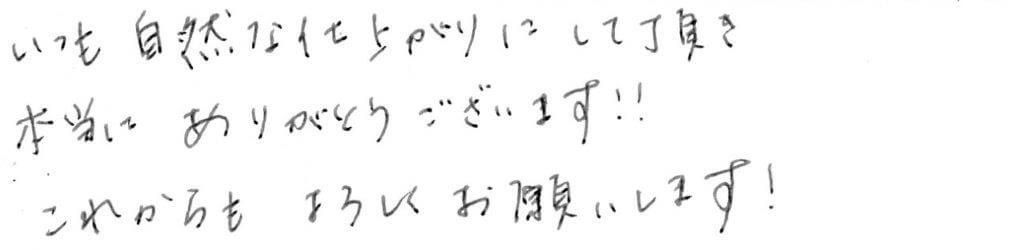 いつも自然な仕上がりにして頂き
本当に ありがとうございます!!
これからも よろしくお願いします!